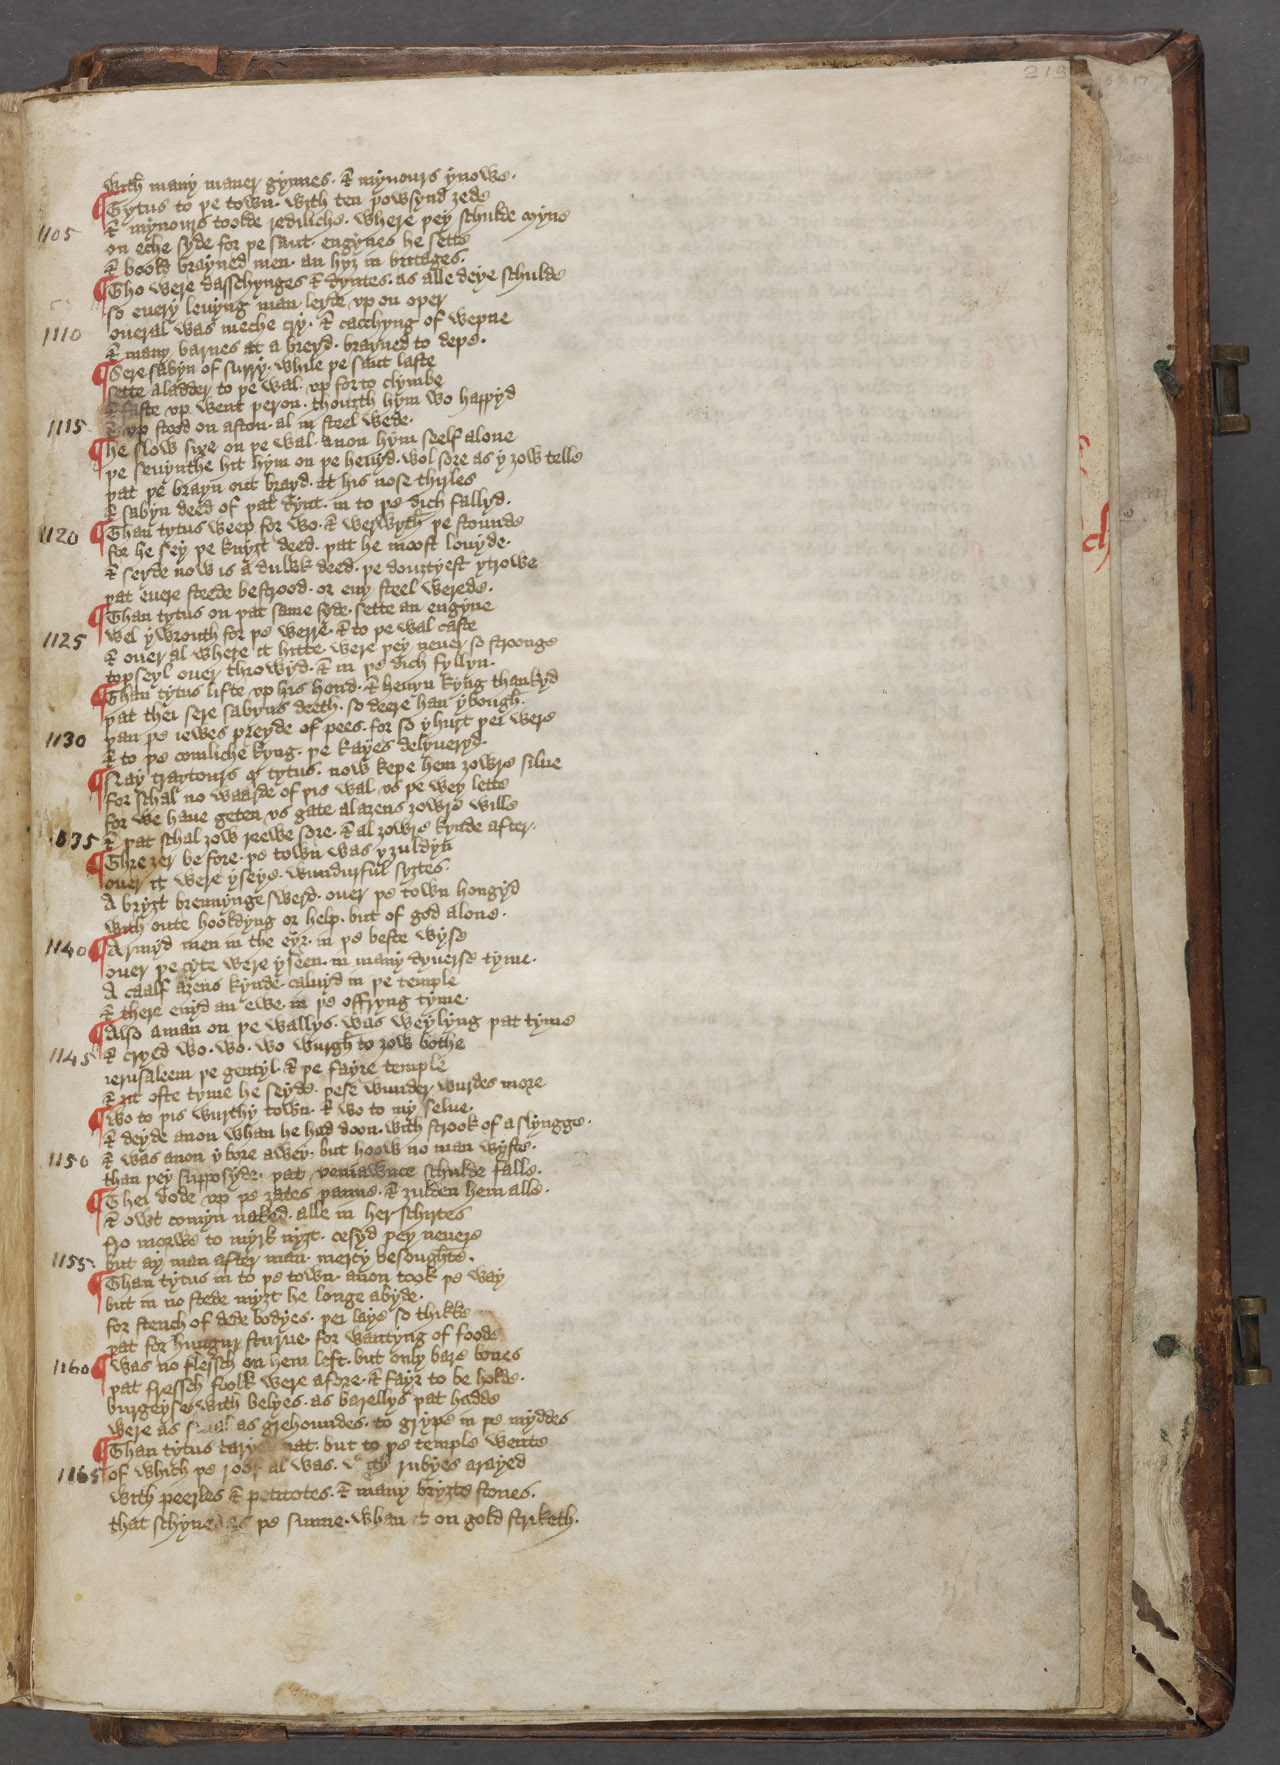 215
with many maner gynnes · & mynours ynowe ·
¶ Tytus to þe town · with ten þowsynd zede
1105 & mynours toolde rediliche · where þey schulde myne
on eche syde for þe saut · engynes he sette
& boold brayned men · an hyz in britages ·
¶ Tho were dasschynges & dyntes · as alle deye schulde
so euery leuyng man · leyde vp on oþer
1110 oueral was meche cry · & cacchyng of wepne
& many barnes at a breyd · brayned to deþe ·
¶ Sere sabyn of surry · while þe saut laste
sette a ladder to þe wal · vp for to clymbe
& faste vp went þeron · thougth hym wo happyd
1115 & vp stood on a ston · al in steel wede ·
¶ he slow sixe on þe wal · anon hym seelf alone
þe seuynthe hit hym on þe heuyd · wol sore as y zow telle
þat þe brayn out brayd · at his nose thirles
& sabyn deed of þat dynt · in to þe dich fallyd ·
1120 ¶ Than tytus weep for wo · & werwyth þe stounde
for he sey þe knyzt deed · þat he moost louyde ·
& seyde now is a dulwk deed · þe douztyest ytrowe
þat euere steede bestrood · or eny steel werede ·
¶ Than tytus on þat same syde · sette an engyne
1125 wel y wrouth for þe werre · & to þe wal caste
& ouer al where it hitte · were þey neuer so stronge
topseyl ouer throwyd · & in þe dich fyllyn ·
¶ Than tytus lifte vp his hond · & heuyn kyng thankyd
þat thei sere sabyns deeth · so deere han ybougth ·
1130 þan þe iewes preyde of pees · for so y hurt þei were
& to þe comliche kyng · þe kayes delyueryd ·
¶ Nay traytours qd tytus · now kepe hem zowre silue
for schal no waarde of þis wal · vs þe wey lette
for we haue geten vs gate al azens zowre wille
1135 & þat schal zow reewe sore · & al zowre kynde after ·
¶ Thre zer be fore · þe town was yzuldyn
ouer it were yseye · wundurful syztes ·
A bryzt brennynge swerd · ouer þe town hongyd
with oute hooldyng or help · but of god alone ·
1140 ¶ Armyd men in the eyr · in þe beste wyse
ouer þe cyte were yseen · in many dyuerse tyme ·
A caalf azens kynde · caluyd in þe temple
& there enyd an ewe · in þe offryng tyme ·
¶ Also a man on þe wallys · was weylyng þat tyme
1145 & cryed wo · wo · wo wurgth to zow bothe
ierusaleem þe gentyl · & þe fayre temple
& zit ofte tyme he seyde · þese wunder wurdes more
¶ wo to þis wurthy town · & wo to my selue ·
& deyde anon whan he had doon · with strook of a slyngge ·
1150 & was anon y bore awey · but hoow no man wyste ·
than þey supposyde · þat veniawnce schulde falle ·
¶ Thei dode vp þe zates þanne · & zulden hem alle ·
& owt comyn naked · alle in her schirtes
fro morwe to myrk nyzt · cesyd þey neuere
1155 but ay man after man · mercy besougthte ·
¶ Than tytus in to þe town · anon took þe way
but in no stede myzt he longe abyde ·
for stench of dede bodyes · þei laye so thikke
þat for hungur sturue · for wantyng of foode
1160 ¶ was no flessch on hem left · but only bare bones
þat fressch foolk were afore · & fayr to be holde ·
burgeyses with belyes · as barellys þat hadde
were as smal as grehoundes · to grype in þe myddes
¶ Than tytus tarye nat · but to þe temple wente
1165 of which þe roof al was · with rubyes arayed
with peerles & peritotes · & many bryzte stones ·
that schyned as þe sunne · whan it on gold striketh ·